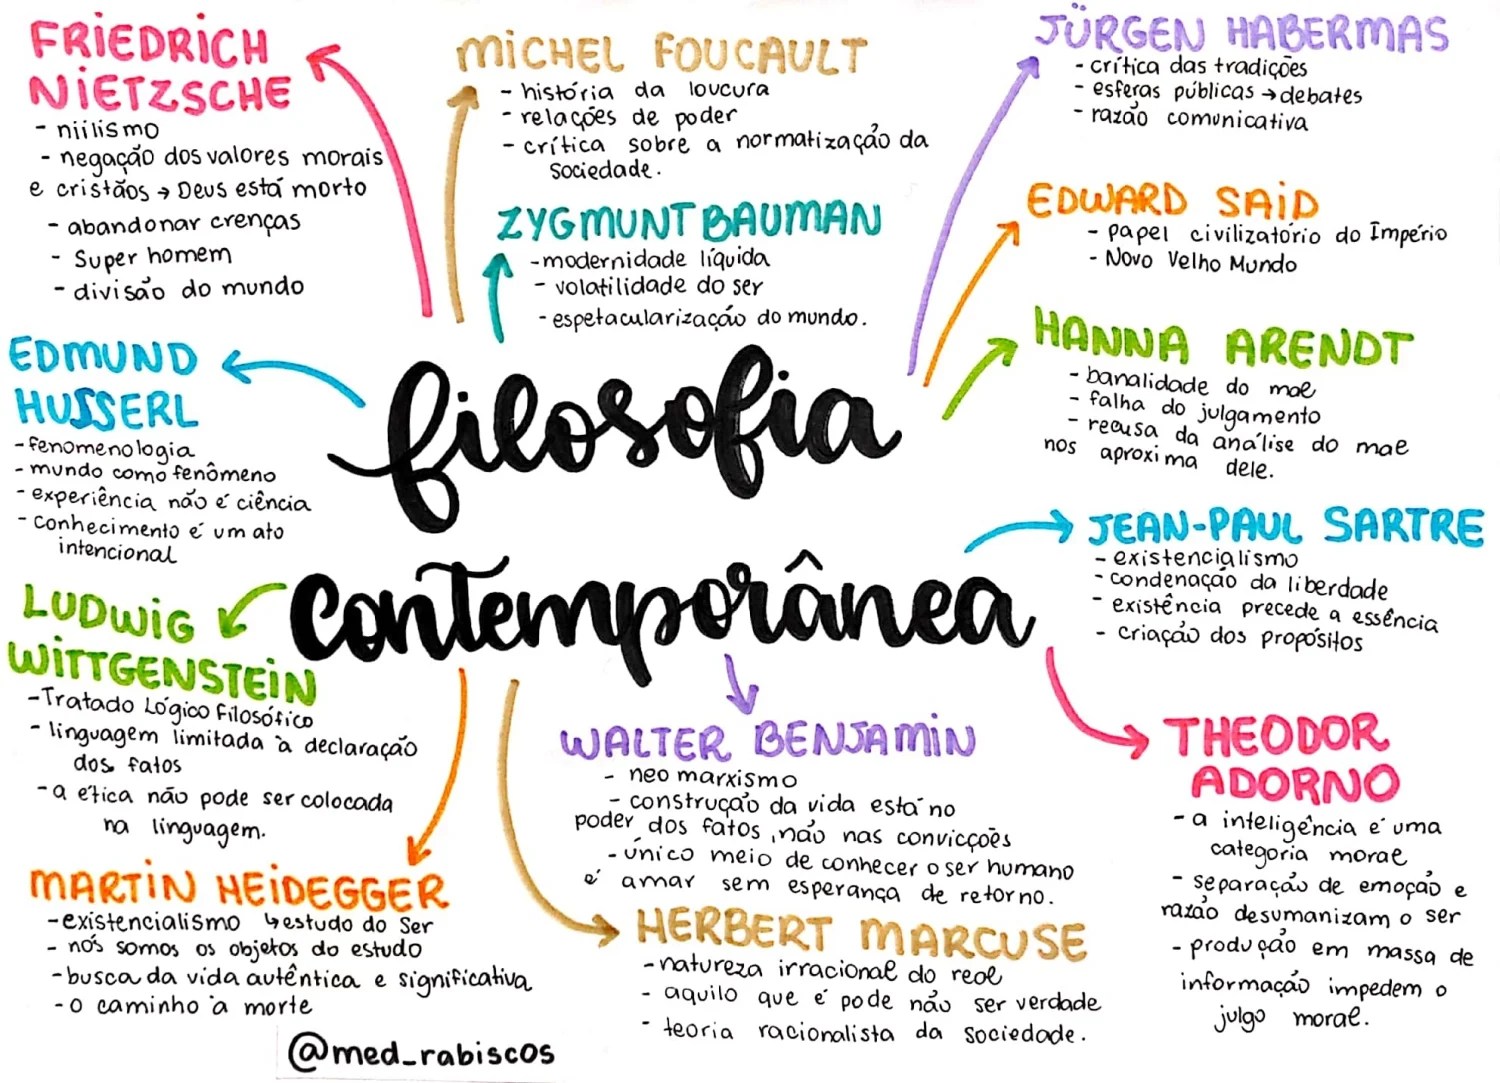 FRIEDRICH
NIETZSCHE
- niilismo
- negação dos valores morais
e cristãos → Deus está morto
- abandonar crenças
- Super homem
- divisão do mundo
MICHEL FOUCAULT
- história da loucura
- relações de poder
- crítica sobre a normatização da
sociedade.
ZYGMUNT BAUMAN
- modernidade líquida
- volatilidade do ser
- espetacularização do mundo.
JÜRGEN HABERMAS
- crítica das tradições
- esferas públicas → debates
- razão comunicativa
EDWARD SAID
- papel civilizatório do Império
- Novo Velho Mundo
HANNA ARENDT
- banalidade do mal
- falha do julgamento
- recusa da análise do mal
nos aproxima dele.
EDMUND
HUSSERL
- fenomenologia
- mundo como fenômeno
- experiência não é ciência
- conhecimento é um ato
intencional
filosofia
contemporânea
JEAN-PAUL SARTRE
- existencialismo
- condenação da liberdade
- existência precede a essência
- criação dos propósitos
LUDWIG
WITTGENSTEIN
- Tratado Lógico Filosófico
- linguagem limitada à declaração
dos fatos
- a ética não pode ser colocada
na linguagem.
MARTIN HEIDEGGER
- existencialismo ↳ estudo do Ser
- nós somos os objetos do estudo
- busca da vida autêntica e significativa
- o caminho à morte
WALTER BENJAMIN
- neo marxismo
- construção da vida está no
poder dos fatos, não nas convicções
- único meio de conhecer o ser humano
é amar sem esperança de retorno.
HERBERT MARCUSE
- natureza irracional do real
- aquilo que é pode não ser verdade
- teoria racionalista da sociedade.
THEODOR
ADORNO
- a inteligência é uma
categoria moral
- separação de emoção e
razão desumanizam o ser
- produção em massa de
informação impedem o
julgo moral.
@med_rabiscos